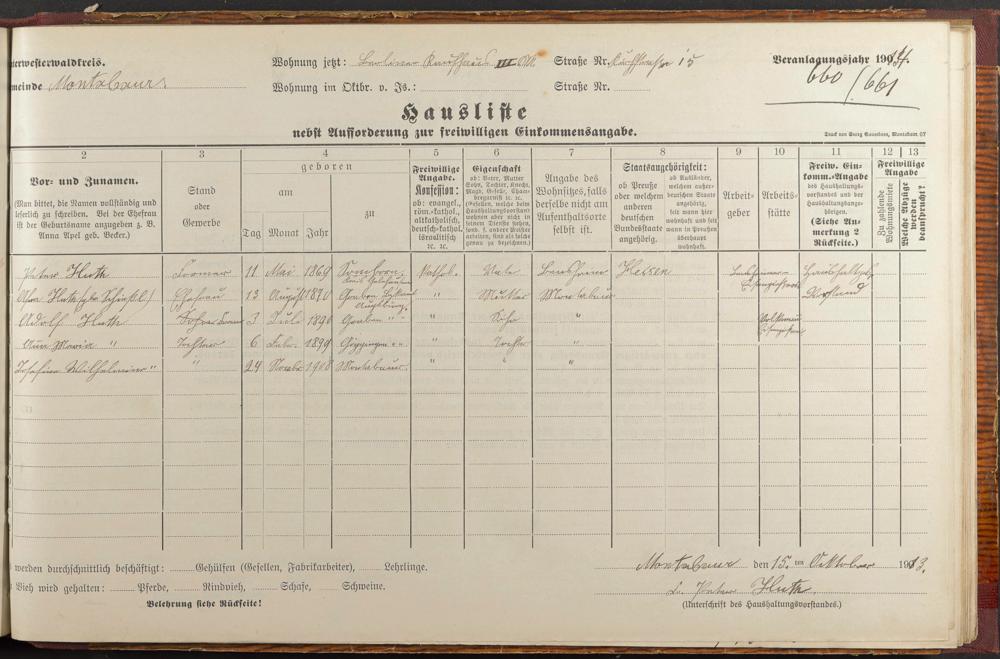 nterwesterwaldkreis. Wohnung jetzt: Berliner Kaufhaus III Straße Nr. Kirchstraße 15 Veranlagungsjahr 1914.
meinde Montabaur Wohnung im Oktbr. v. Js.: Straße Nr. 660/661
Hausliste
nebst Aufforderung zur freiwilligen Einkommensangabe.
Druck von Georg Sauerborn, Montabaur. 07
2 3 4 5 6 7 8 9 10 11 12 13
Vor- und Zunamen.
(Man bittet, die Namen vollständig und
leserlich zu schreiben. Bei der Ehefrau
ist der Geburtsname anzugeben z. B.
Anna Apel geb. Becker.)
Stand
oder
Gewerbe
geboren
am
zu
Tag Monat Jahr
Freiwillige
Angabe.
Konfession:
ob: evangel.,
röm.-kathol.,
altkatholisch,
deutsch-kathol.
israelitisch
ꝛc. ꝛc.
Eigenschaft
ob: Vater, Mutter
Sohn, Tochter, Knecht,
Magd, Geselle, Cham-
bregarnist ꝛc. ꝛc.
(Gesellen, welche beim
Haushaltungsvorstand
wohnen aber nicht in
seinen Diensten stehen,
sond. f. andere Meister
arbeiten, sind als solche
genau zu bezeichnen.)
Angabe des
Wohnsitzes, falls
derselbe nicht am
Aufenthaltsorte
selbst ist.
Staatsangehörigkeit:
ob Preuße
oder welchem
anderen
deutschen
Bundesstaate
angehörig.
ob Ausländer,
welchem außer-
deutschen Staate
angehörig,
seit wann hier
wohnhaft und seit
wann in Preußen
überhaupt
wohnhaft.
Arbeit-
geber
Arbeits-
stätte
Freiw. Ein-
komm.-Angabe
des Haushaltungs-
vorstandes und der
Haushaltungsange-
hörigen.
(Siehe An-
merkung 2
Rückseite.)
Freiwillige
Angabe
Zu zahlende
Wohnungsmiete
Welche Abzüge
werden
beansprucht?
Peter Huth 11 Mai 1869 Somborn Kathol. Vater Hessen
Huth geb. Ehefrau 13 August 1870 " Mutter Montabaur
Adolf Huth 3 Juli 1896 " Sohn "
Maria " Tochter 6 1899 Göppingen " Tochter "
Josefine Wilhelmine " " 24 Novbr Montabaur " " "
werden durchschnittlich beschäftigt: Gehülfen (Gesellen, Fabrikarbeiter), Lehrlinge.
Vieh wird gehalten: Pferde, Rindvieh, Schafe, Schweine.
Belehrung siehe Rückseite!
Montabaur den 15. ten Oktober 1913.
Peter Huth
(Unterschrift des Haushaltungsvorstandes.)